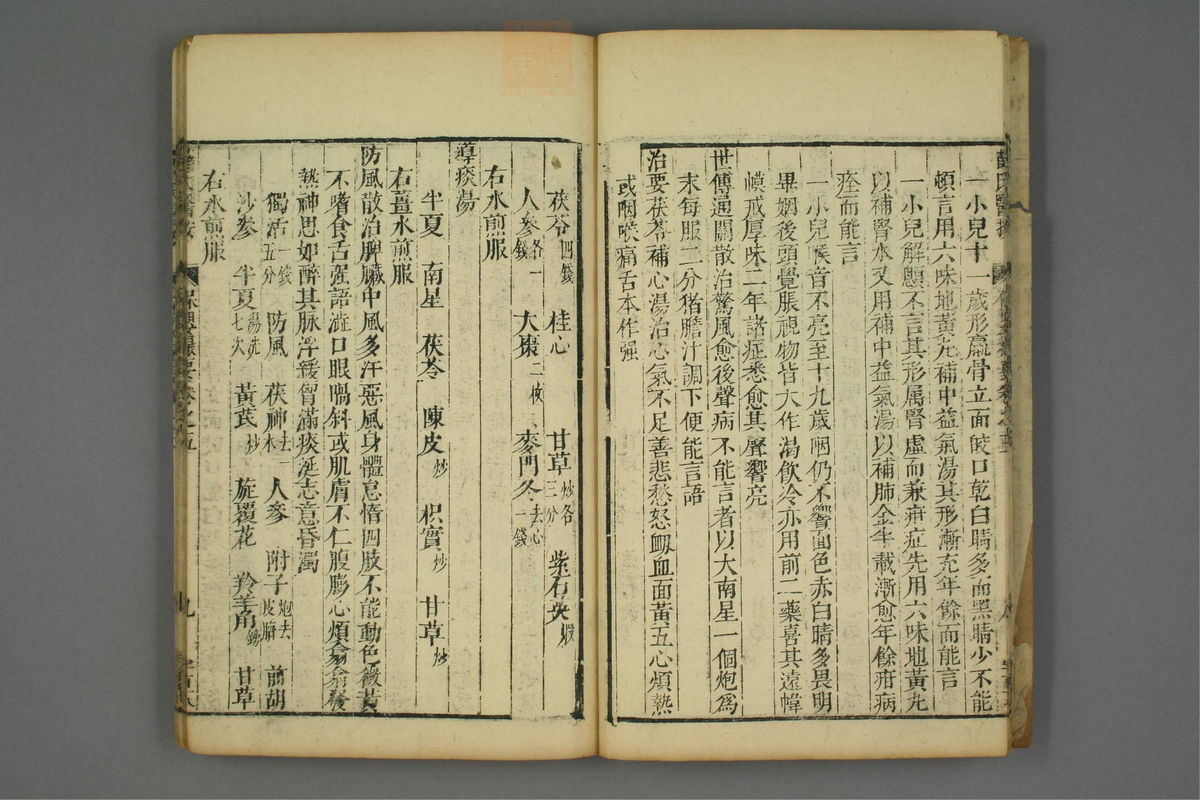 薛氏醫按
一小兒十一歲形羸骨立面㿠口乾白睛多而黑睛少不能
頓言用六味地黃丸補中益氣湯其形漸充年餘而能言
一小兒解顱不言其形属腎虛而兼疳症先用六味地黃丸
以補腎水又用補中益氣湯以補肺金半載漸愈年餘疳病
痊而能言
一小兒喉音不亮至十九歲咽仍不響面色赤白睛多畏明
畢姻後頭覺脹視物皆大作渴飲冷亦用前二藥喜其遠幃
幙戒厚味二年諸症悉愈其聲響亮
世傳通關散治驚風愈後聲病不能言者以大南星一個炮爲
末每服二分猪膽汁調下便能言語
治要茯苓補心湯治心氣不足善悲愁怒衂血面黃五心煩熱
或咽喉痛舌本作强
茯苓四錢 桂心 甘草炒各三分 紫石英煅
人參各一錢 大棗二枚 麥門冬去心一錢
右水煎服
導痰湯
半夏 南星 茯苓 陳皮炒 枳實炒 甘草炒
右薑水煎服
防風散治脾臟中風多汗惡風身體怠惰四肢不能動色微黃
不嗜食舌强語澁口眼喎斜或肌膚不仁腹膨心煩翕翕發
熱神思如醉其脉浮緩胷滿痰涎志意昏濁
獨活一錢五分 防風 茯神去木 人參 附子炮去皮臍 前胡
沙參 半夏湯洗七次 黃茋炒 旋覆花 羚羊角鎊 甘草
右水煎服
保嬰撮要卷之五
九